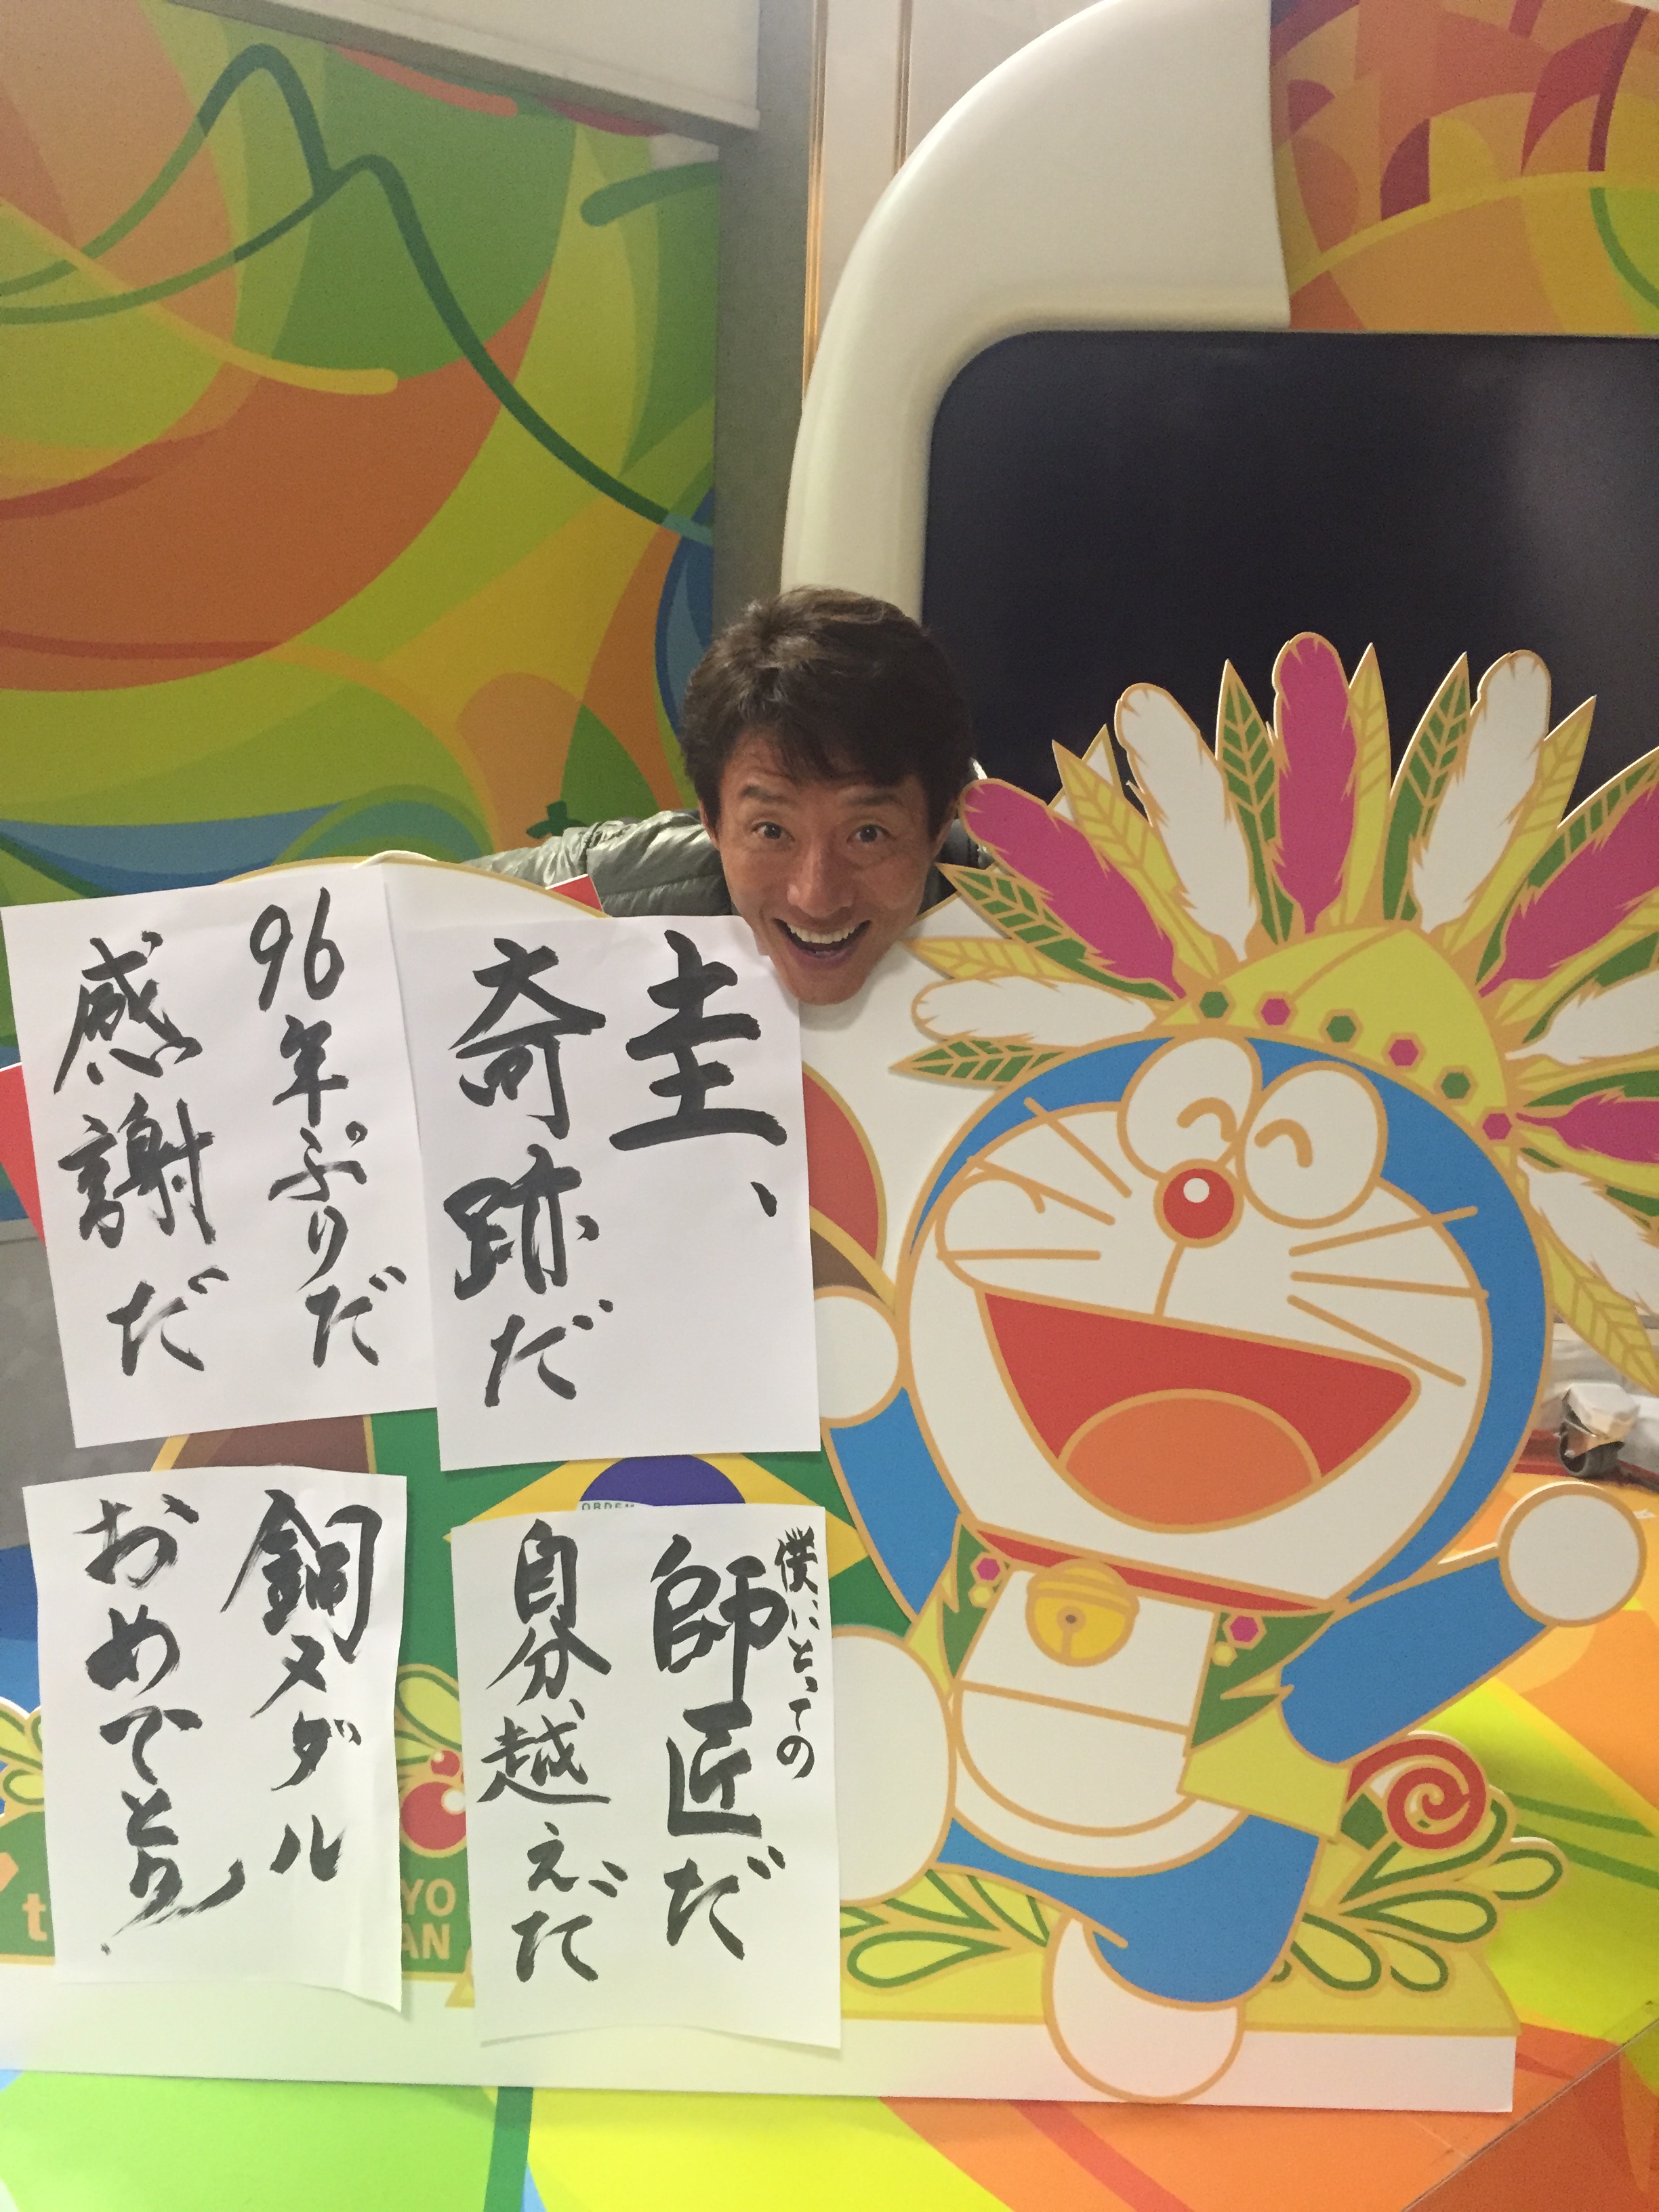 圭、
奇跡だ
96年ぶりだ
感謝だ
僕にとっての
師匠だ
自分、越えだ
銅メダル
おめでとう
ORDEM
YO
AN
t